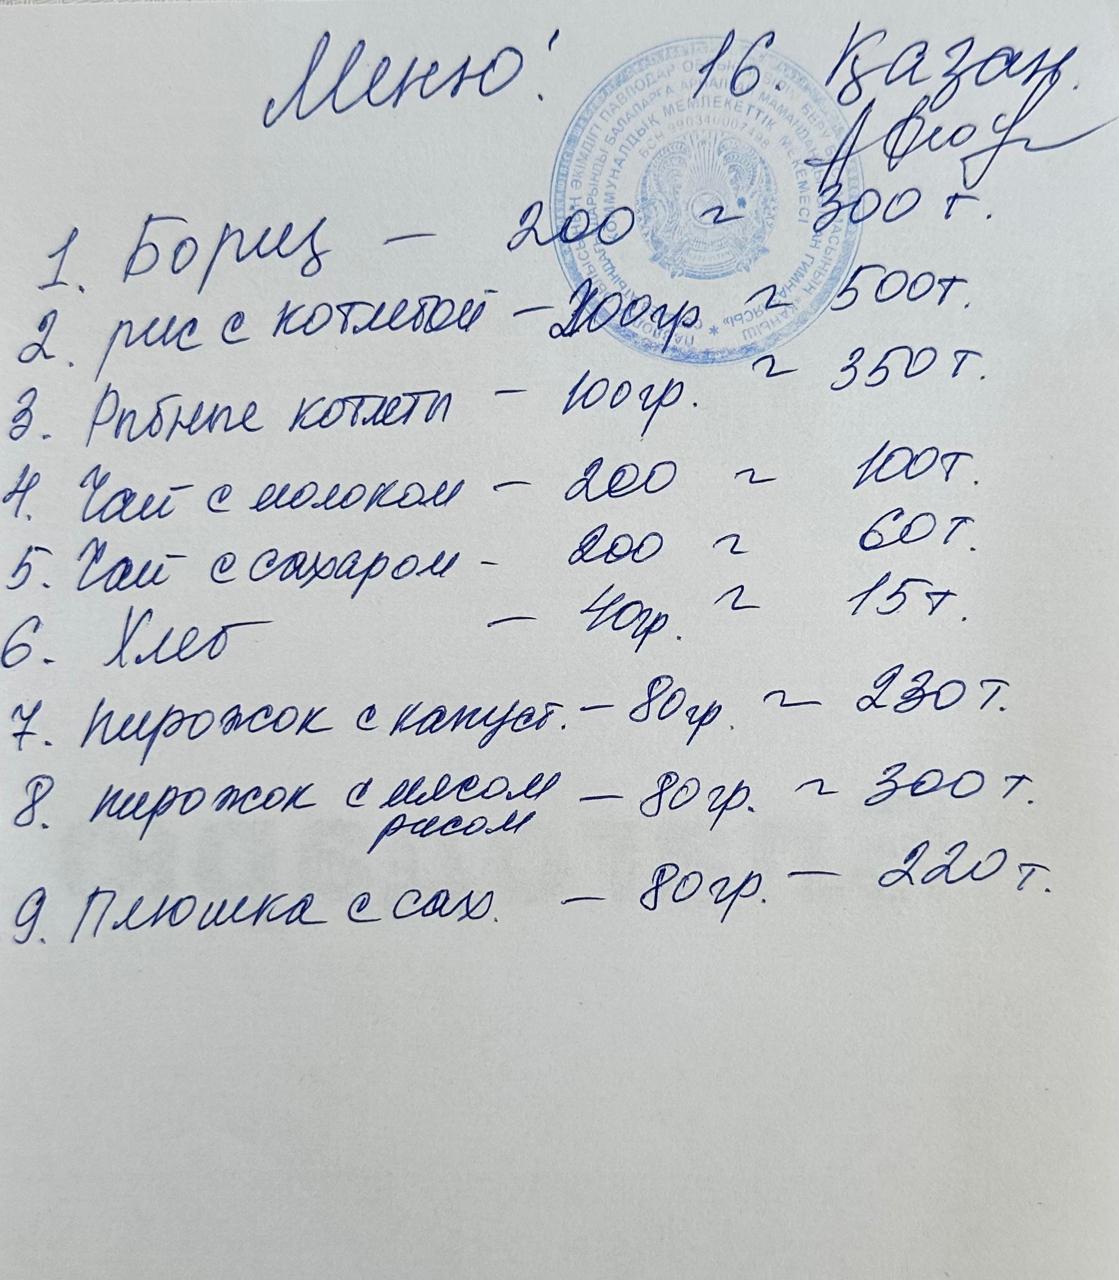 Меню! 16. Қазан.
1. Борщ - 200 ~ 300 т.
2. рис с котлетой - 200гр. ~ 500т.
3. Рыбные котлеты - 100гр. ~ 350т.
4. Чай с молоком - 200 ~ 100т.
5. Чай с сахаром - 200 ~ 60т.
6. Хлеб - 40гр. ~ 15т.
7. пирожок с капуст. - 80гр. ~ 230т.
8. пирожок с мясом - 80гр. ~ 300т.
рисом
9. Плюшка с сах. - 80гр. - 220т.
БСН 990340007498
КОММУНАЛДЫҚ МЕМЛЕКЕТТІК МЕКЕМЕСІ